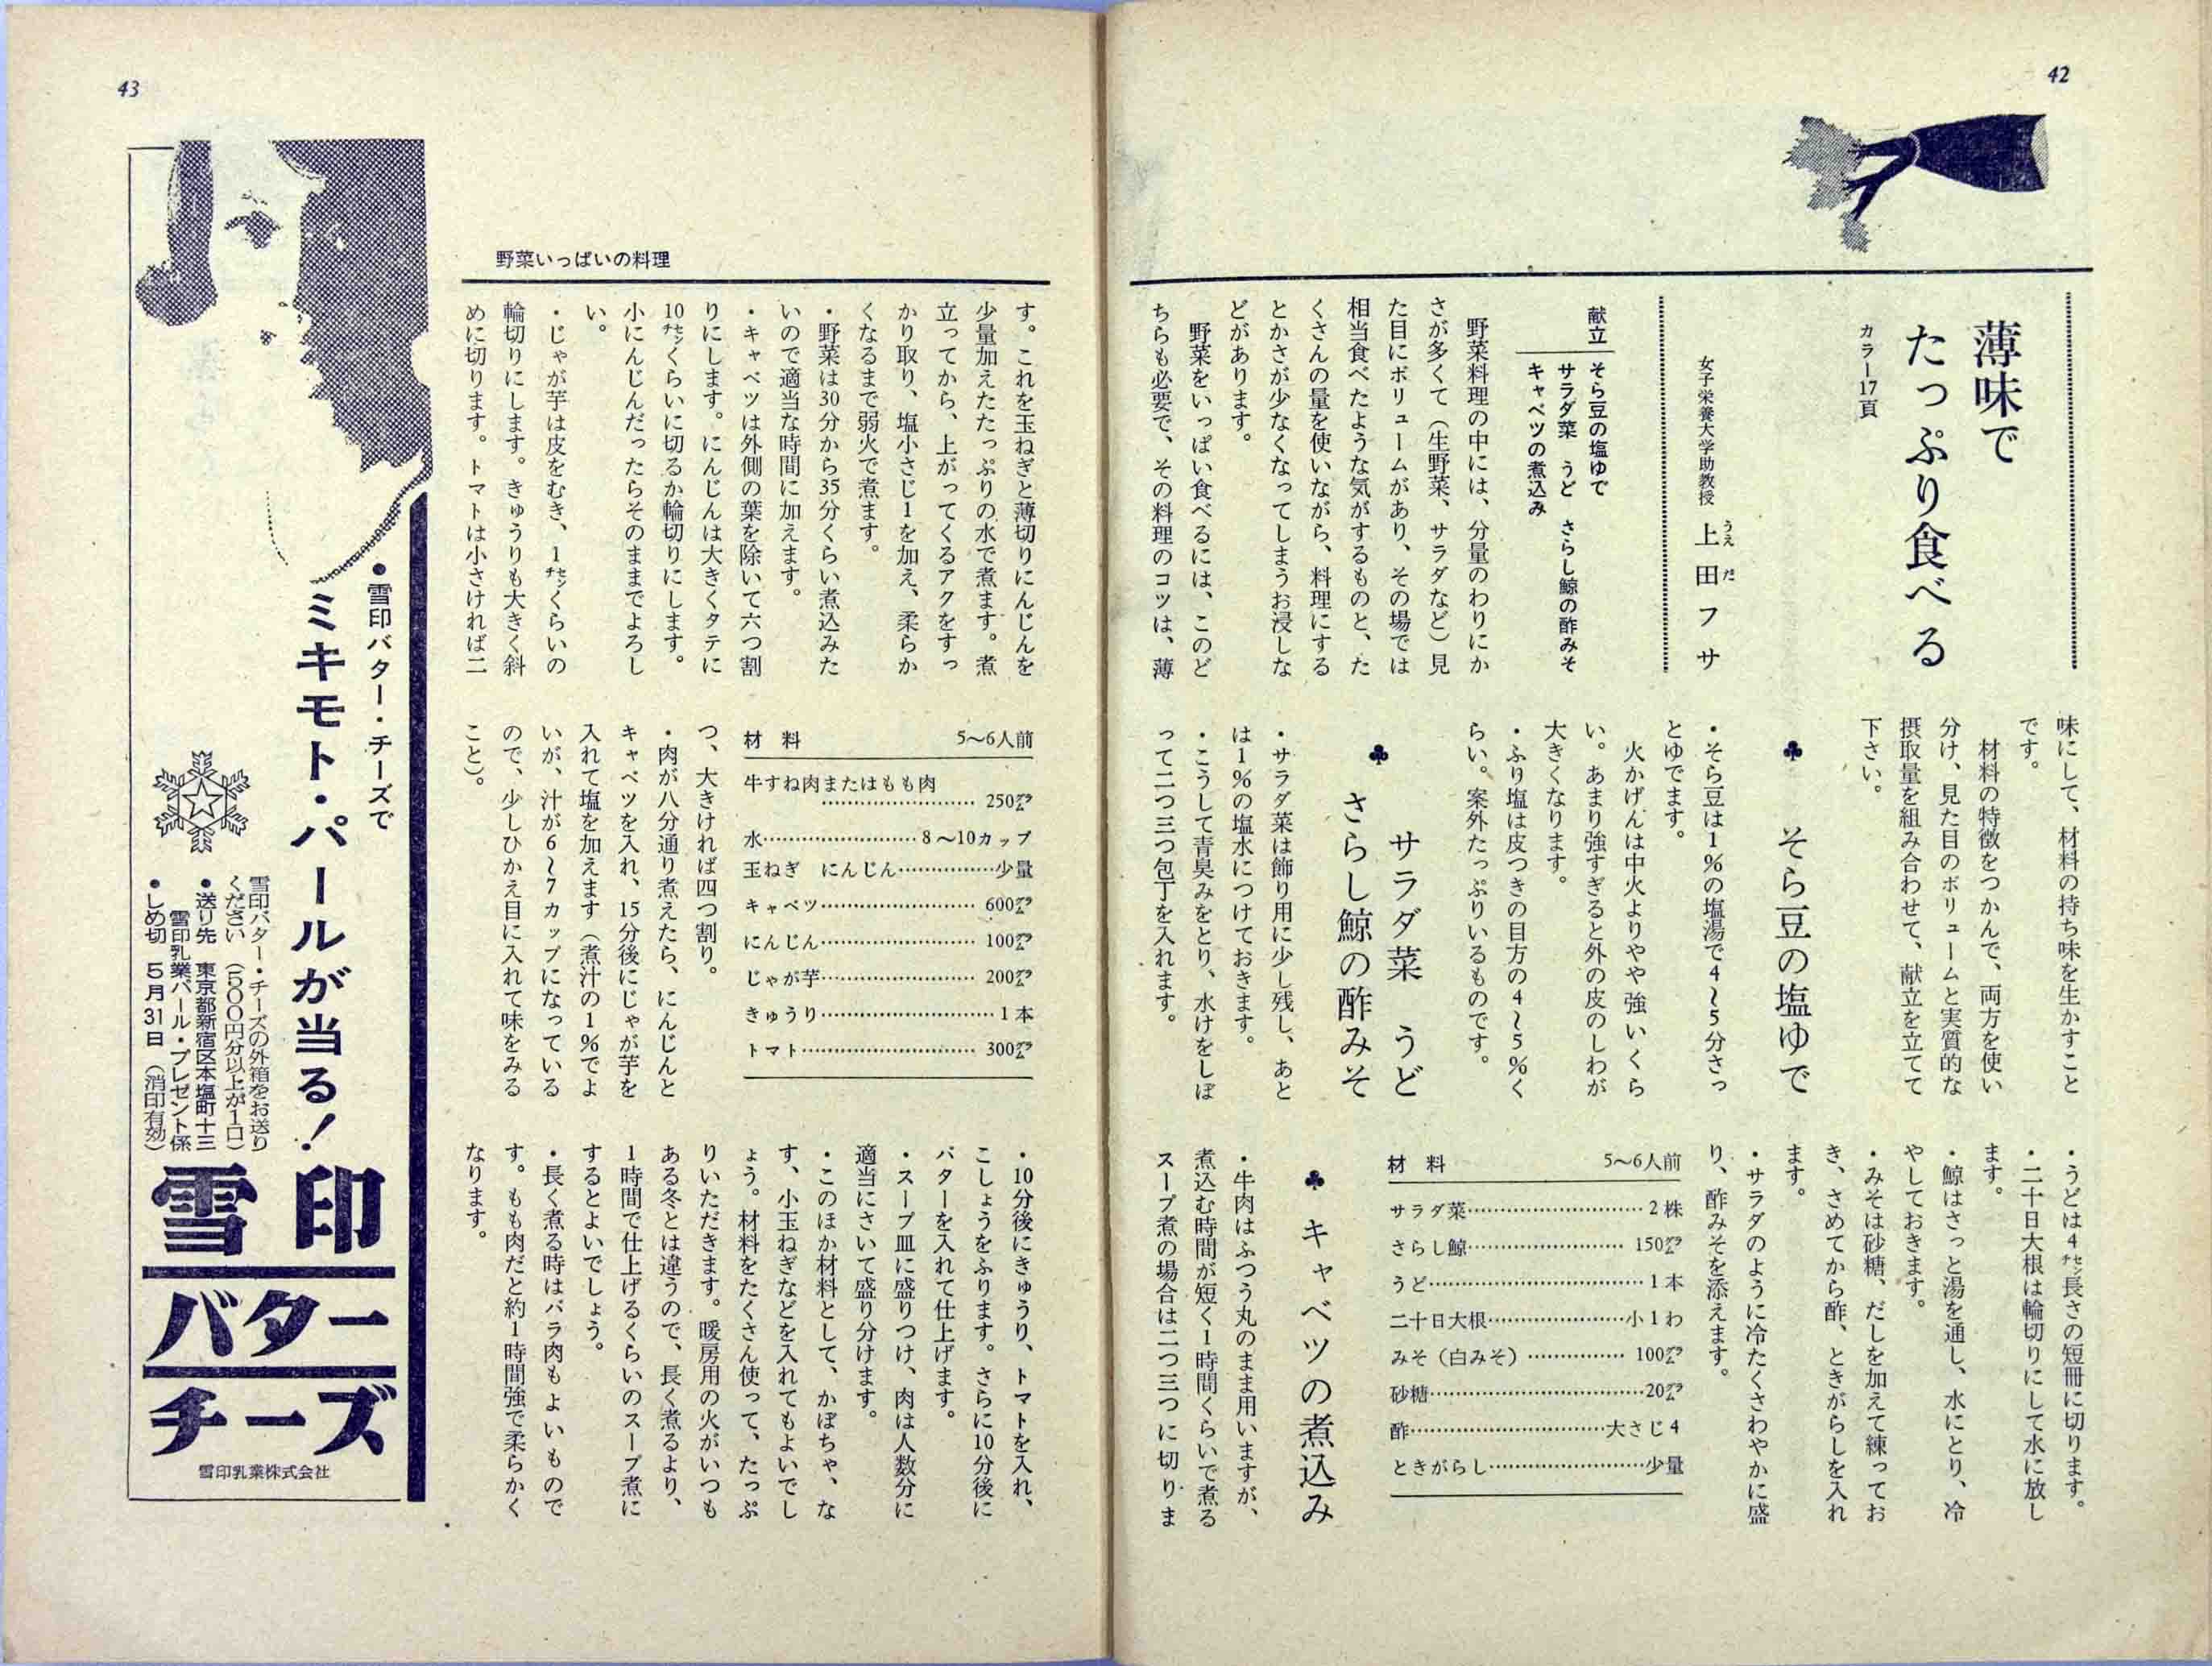 42
薄味で
たっぷり食べる
カラー17頁
女子栄養大学助教授 上田フサ
うえ だ
献立
そら豆の塩ゆで
サラダ菜 うど さらし鯨の酢みそ
キャベツの煮込み
野菜料理の中には、分量のわりにか
さが多くて（生野菜、サラダなど）見
た目にボリュームがあり、その場では
相当食べたような気がするものと、た
くさんの量を使いながら、料理にする
とかさが少なくなってしまうお浸しな
どがあります。
野菜をいっぱい食べるには、このど
ちらも必要で、その料理のコツは、薄
味にして、材料の持ち味を生かすこと
です。
材料の特徴をつかんで、両方を使い
分け、見た目のボリュームと実質的な
摂取量を組み合わせて、献立を立てて
下さい。
♣ そら豆の塩ゆで
・そら豆は1％の塩湯で4〜5分さっ
とゆでます。
火かげんは中火よりやや強いくら
い。あまり強すぎると外の皮のしわが
大きくなります。
・ふり塩は皮つきの目方の4〜5％く
らい。案外たっぷりいるものです。
♣ サラダ菜 うど
さらし鯨の酢みそ
・サラダ菜は飾り用に少し残し、あと
は1％の塩水につけておきます。
・こうして青臭みをとり、水けをしぼ
って二つ三つ包丁を入れます。
・うどは4㌢長さの短冊に切ります。
・二十日大根は輪切りにして水に放し
ます。
・鯨はさっと湯を通し、水にとり、冷
やしておきます。
・みそは砂糖、だしを加えて練ってお
き、さめてから酢、ときがらしを入れ
ます。
・サラダのように冷たくさわやかに盛
り、酢みそを添えます。
材 料 5〜6人前
サラダ菜……………………2株
さらし鯨……………………150㌘
うど……………………1本
二十日大根……………………小1わ
みそ（白みそ）……………100㌘
砂糖……………………20㌘
酢……………………大さじ4
ときがらし……………………少量
♣ キャベツの煮込み
・牛肉はふつう丸のまま用いますが、
煮込む時間が短く1時間くらいで煮る
スープ煮の場合は二つ三つに切りま
43
野菜いっぱいの料理
す。これを玉ねぎと薄切りにんじんを
少量加えたたっぷりの水で煮ます。煮
立ってから、上がってくるアクをすっ
かり取り、塩小さじ1を加え、柔らか
くなるまで弱火で煮ます。
・野菜は30分から35分くらい煮込みた
いので適当な時間に加えます。
・キャベツは外側の葉を除いて六つ割
りにします。にんじんは大きくタテに
10㌢くらいに切るか輪切りにします。
小にんじんだったらそのままでよろし
い。
・じゃが芋は皮をむき、1㌢くらいの
輪切りにします。きゅうりも大きく斜
めに切ります。トマトは小さければ二
つ、大きければ四つ割り。
材 料 5〜6人前
牛すね肉またはもも肉
……………………250㌘
水……………………8〜10カップ
玉ねぎ にんじん……………少量
キャベツ……………………600㌘
にんじん……………………100㌘
じゃが芋……………………200㌘
きゅうり……………………1本
トマト……………………300㌘
・肉が八分通り煮えたら、にんじんと
キャベツを入れ、15分後にじゃが芋を
入れて塩を加えます（煮汁の1％でよ
いが、汁が6〜7カップになっている
ので、少しひかえ目に入れて味をみる
こと）。
・10分後にきゅうり、トマトを入れ、
こしょうをふります。さらに10分後に
バターを入れて仕上げます。
・スープ皿に盛りつけ、肉は人数分に
適当にさいて盛り分けます。
・このほか材料として、かぼちゃ、な
す、小玉ねぎなどを入れてもよいでし
ょう。材料をたくさん使って、たっぷ
りいただきます。暖房用の火がいつも
ある冬とは違うので、長く煮るより、
1時間で仕上げるくらいのスープ煮に
するとよいでしょう。
・長く煮る時はバラ肉もよいもので
す。もも肉だと約1時間強で柔らかく
なります。
●雪印バター・チーズで
ミキモト・パールが当る！
雪印バター・チーズの外箱をお送り
ください（500円分以上が1口）
●送り先 東京都新宿区本塩町十三
雪印乳業パール・プレゼント係
●しめ切 5月31日（消印有効）
雪印
バター
チーズ
雪印乳業株式会社